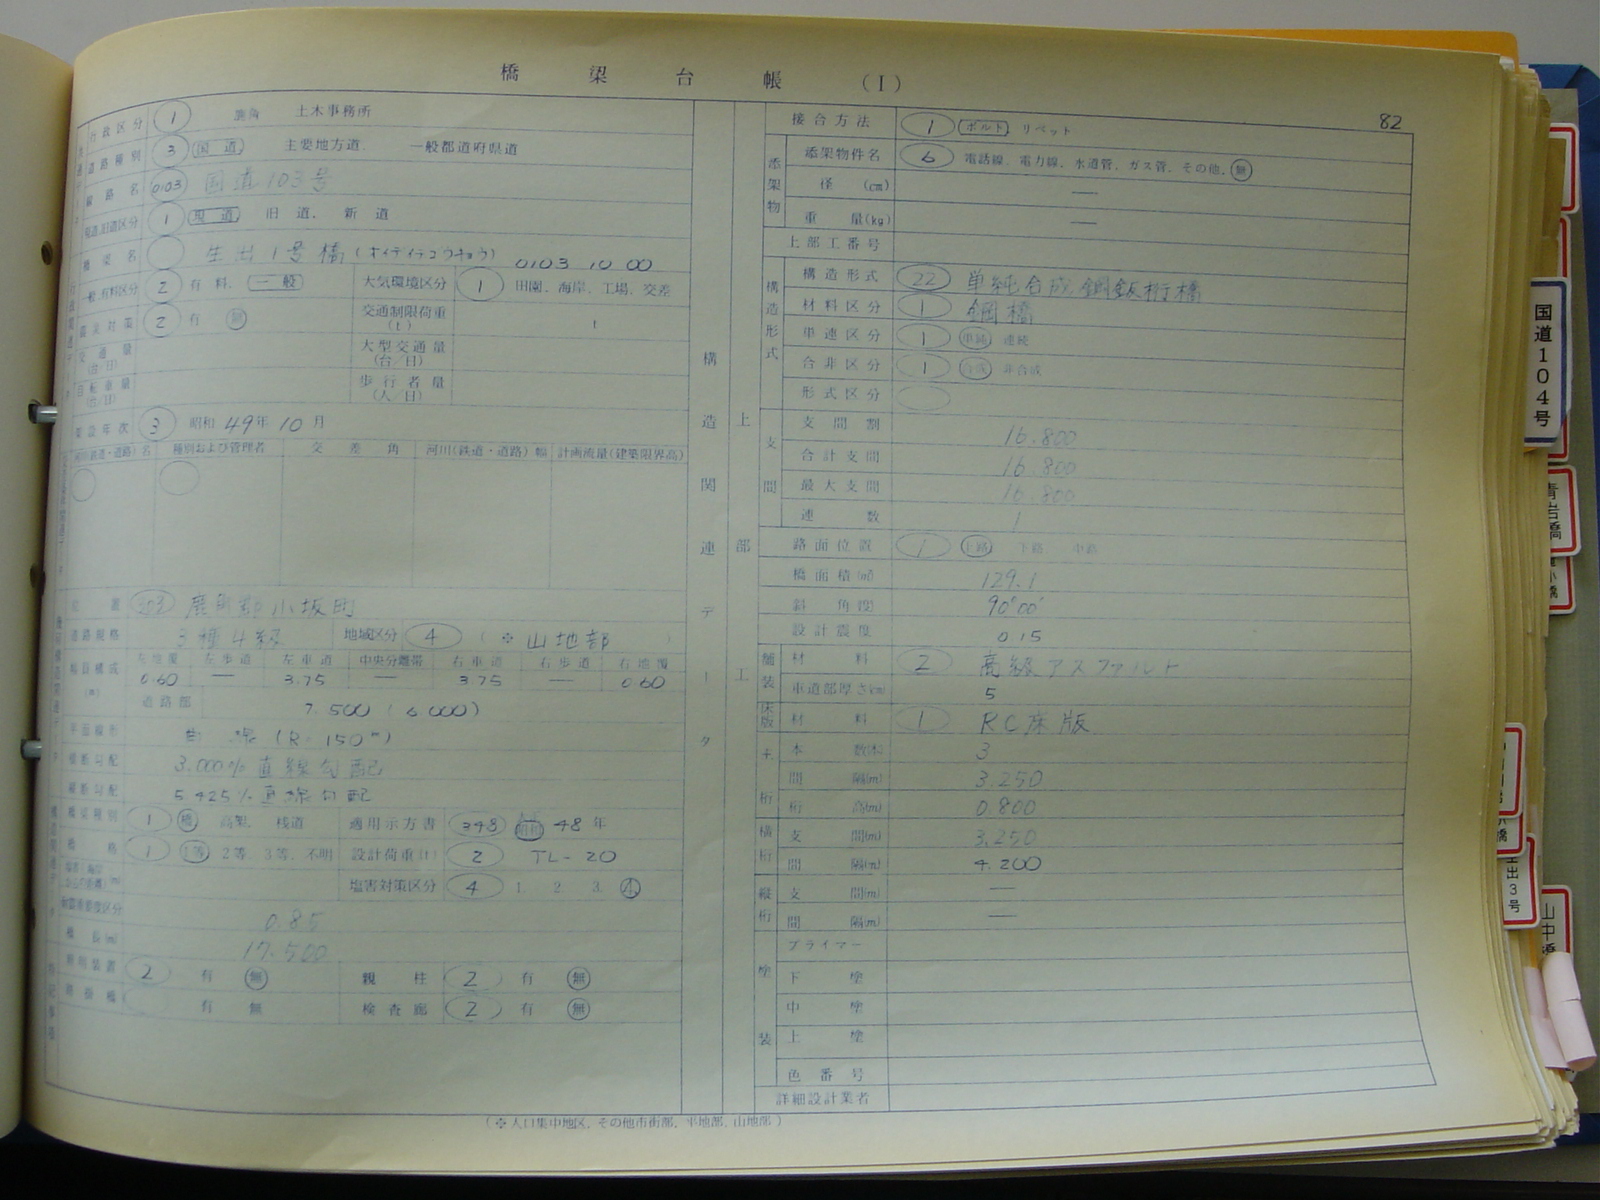 橋梁台帳 (I)
82
行政区分 1 鹿角 土木事務所
道路種別 3 国道 主要地方道. 一般都道府県道
路線名 0103 国道103号
現道,旧道区分 1 現道 旧道. 新道
橋梁名 生出1号橋 (オイデイチゴウキョウ) 0103 10 00
一般,有料区分 2 有料. 一般 大気環境区分 1 田園. 海岸. 工場. 交差
震災対策 2 有 無 交通制限荷重(t) t
交通量(台/日) 大型交通量(台/日)
自転車量(台/日) 歩行者量(人/日)
架設年次 3 昭和 49年 10月
河川(鉄道・道路)名 種別および管理者 交差角 河川(鉄道・道路)幅 計画流量(建築限界高)
位置 303 鹿角郡小坂町
道路規格 3種4級 地域区分 4 (※山地部)
幅員構成(m) 左地覆 左歩道 左車道 中央分離帯 右車道 右歩道 右地覆
0.60 — 3.75 — 3.75 — 0.60
道路部 7.500 (6.000)
平面線形 曲線 (R=150m)
横断勾配 3.000% 直線勾配
縦断勾配 5.425% 直線勾配
橋梁種別 1 橋 高架. 桟道 適用示方書 348 昭和 48年
橋格 1 1等 2等. 3等. 不明 設計荷重(t) 2 TL-20
塩害対策区分 4 1. 2. 3. 4
0.85
橋長(m) 17.500
照明装置 2 有 無 親柱 2 有 無
有 無 検査廊 2 有 無
(※人口集中地区. その他市街部. 平地部. 山地部)
構造関連データ
上部工
接合方法 1 ボルト リベット
添架物 添架物件名 6 電話線. 電力線. 水道管. ガス管. その他. 無
径 (cm) —
重量(kg) —
上部工番号
構造形式 構造形式 22 単純合成鋼鈑桁橋
材料区分 1 鋼橋
単連区分 1 単純 連続
合非区分 1 合成 非合成
形式区分
支間 支間割 16.800
合計支間 16.800
最大支間 16.800
連数 1
路面位置 1 上路 下路 中路
橋面積(㎡) 129.1
斜角度 90°00′
設計震度 0.15
舗装 材料 2 高級アスファルト
車道部厚さ(cm) 5
床版 材料 1 RC床版
主桁 本数(本) 3
間隔(m) 3.250
桁高(m) 0.800
横桁 支間(m) 3.250
間隔(m) 4.200
縦桁 支間(m) —
間隔(m) —
塗装 プライマー
下塗
中塗
上塗
色番号
詳細設計業者
国道104号
青岩橋
小橋
橋
生出3号
山中橋